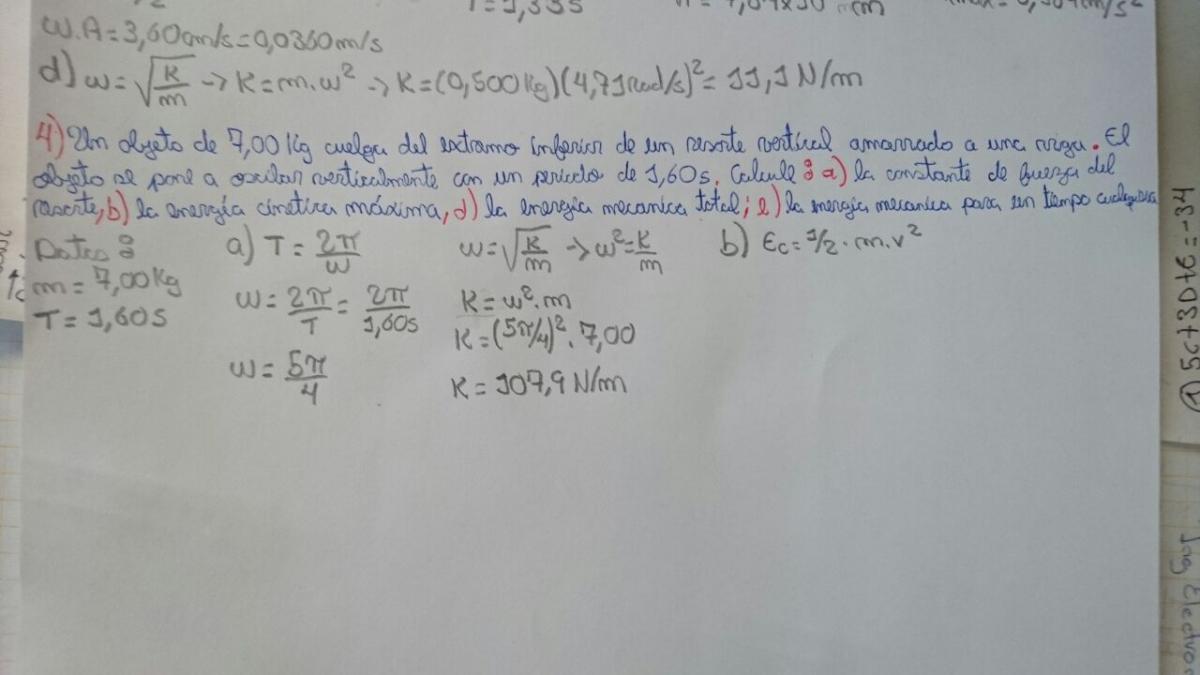 T = 1,33s
W.A = 3,60cm/s = 0,0360m/s
d) ω = √(K/m) → K = m.ω² → K = (0,500Kg)(4,71rad/s)² = 11,1 N/m
4) Un objeto de 7,00 Kg cuelga del extremo inferior de un resorte vertical amarrado a una viga. El
objeto se pone a oscilar verticalmente con un periodo de 1,60s. Calcule: a) la constante de fuerza del
resorte, b) la energía cinetica máxima, d) la energia mecanica total; e) la energia mecanica para un tiempo cualquiera
Datos:
m = 7,00Kg
T = 1,60s
a) T = 2π/ω
ω = 2π/T = 2π/1,60s
ω = 5π/4
ω = √(K/m) → ω² = K/m
K = ω².m
K = (5π/4)². 7,00
K = 107,9 N/m
b) Ec = 1/2 . m.v²
1) 5c+3D+6=-34